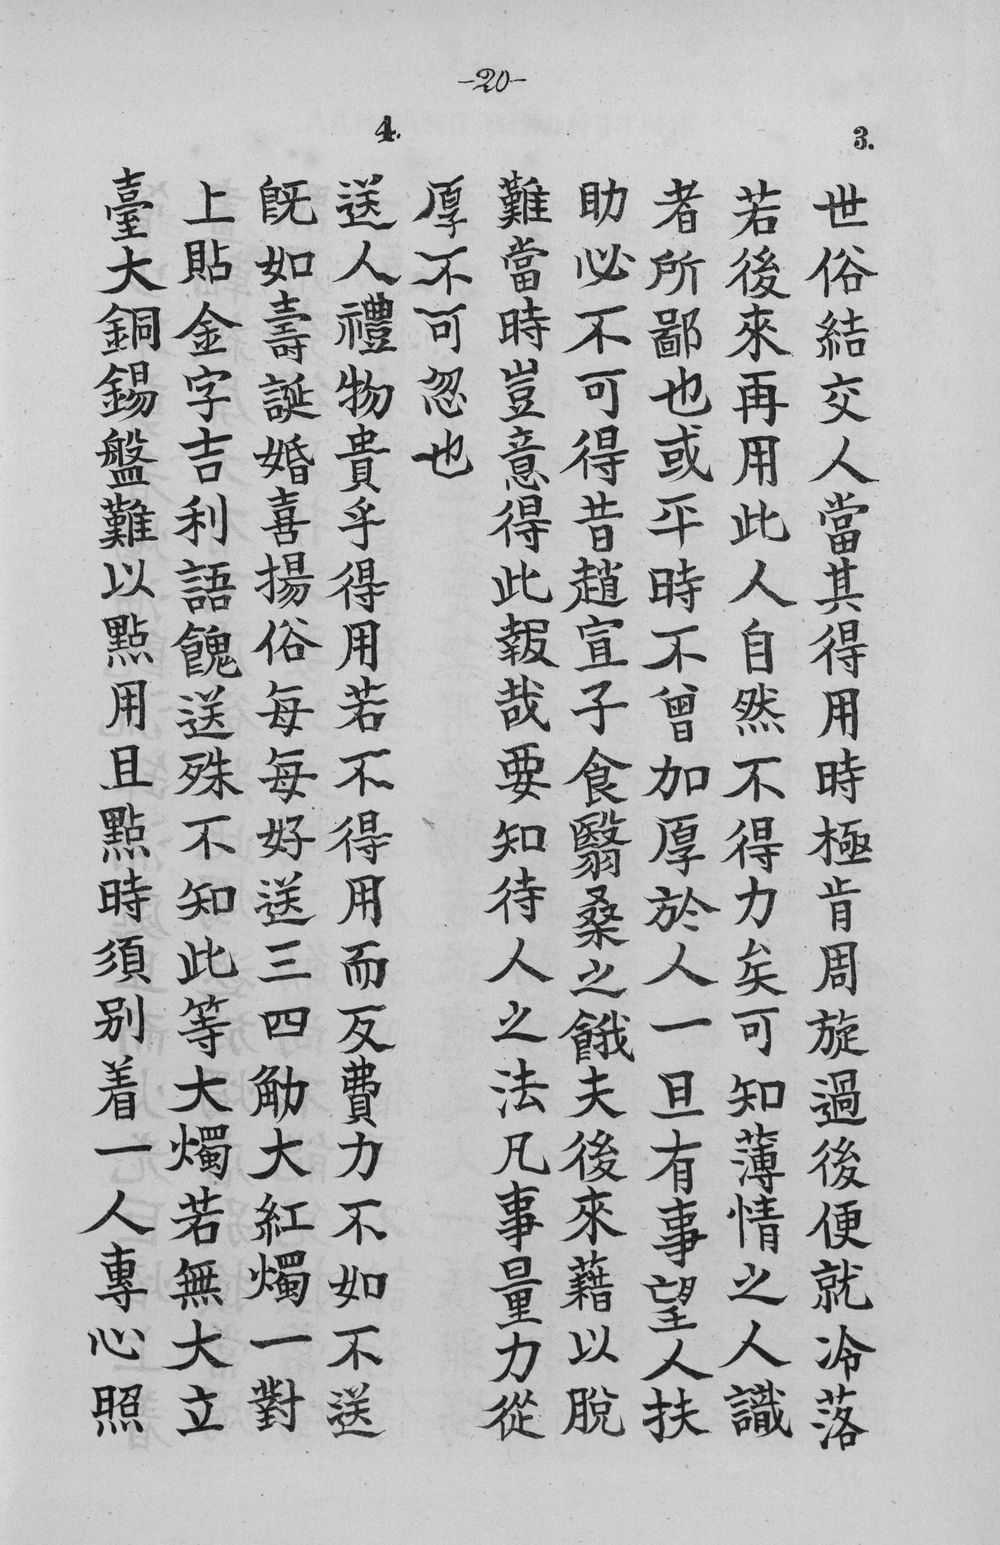 -20-
3.
世俗結交人當其得用時極肯周旋過後便就冷落
若後來再用此人自然不得力矣可知薄情之人識
者所鄙也或平時不曾加厚於人一旦有事望人扶
助必不可得昔趙宣子食翳桑之餓夫後來藉以脫
難當時豈意得此報哉要知待人之法凡事量力從
厚不可忽也
4.
送人禮物貴乎得用若不得用而反費力不如不送
旣如壽誕婚喜揚俗每每好送三四觔大紅燭一對
上貼金字吉利語餽送殊不知此等大燭若無大立
臺大銅錫盤難以點用且點時須别着一人專心照